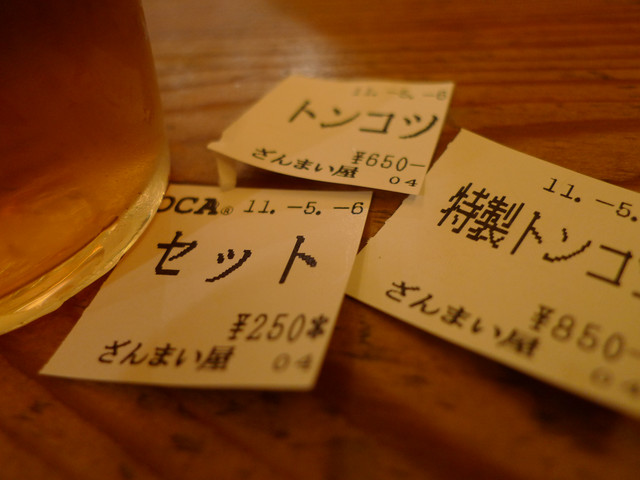 11.-5.-6
トンコツ
¥650-
ざんまい屋 04
OCA® 11.-5.-6
セット
¥250客
ざんまい屋 04
11.-5.
特製トンコ
¥850-
ざんまい屋 04